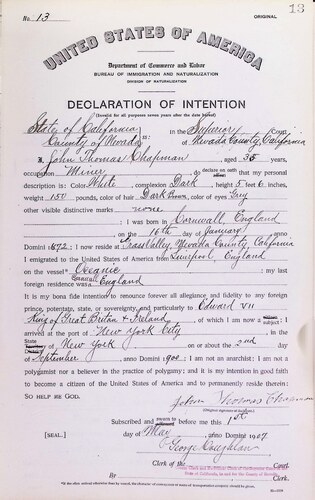 13
No. 13
ORIGINAL
UNITED STATES OF AMERICA
Department of Commerce and Labor
BUREAU OF IMMIGRATION AND NATURALIZATION
DIVISION OF NATURALIZATION
DECLARATION OF INTENTION
(Invalid for all purposes seven years after the date hereof)
State of California
County of Nevada
ss:
In the Superior Court
of Nevada County, California
I, John Thomas Chapman, aged 35 years,
occupation Miner, do declare on oath that my personal
description is: Color White, complexion Dark, height 5 feet 6 inches,
weight 150 pounds, color of hair Dark Brown, color of eyes Grey
other visible distinctive marks none
I was born in Cornwall England
on the 16th day of January, anno
Domini 1872; I now reside at Grass Valley, Nevada County, California
I emigrated to the United States of America from Liverpool, England
on the vessel Oceanic; my last
foreign residence was Cornwall England
It is my bona fide intention to renounce forever all allegiance and fidelity to any foreign
prince, potentate, state, or sovereignty, and particularly to Edward VII
King of Great Britain & Ireland, of which I am now a subject; I
arrived at the port of New York City, in the
State of New York on or about the 2nd day
of September, anno Domini 1900; I am not an anarchist; I am not a
polygamist nor a believer in the practice of polygamy; and it is my intention in good faith
to become a citizen of the United States of America and to permanently reside therein:
SO HELP ME GOD.
John Thomas Chapman
(Original signature of declarant)
Subscribed and sworn to before me this 1st
[SEAL.]
day of May, anno Domini 1907.
George Coughlan
Clerk of the
By, Clerk.